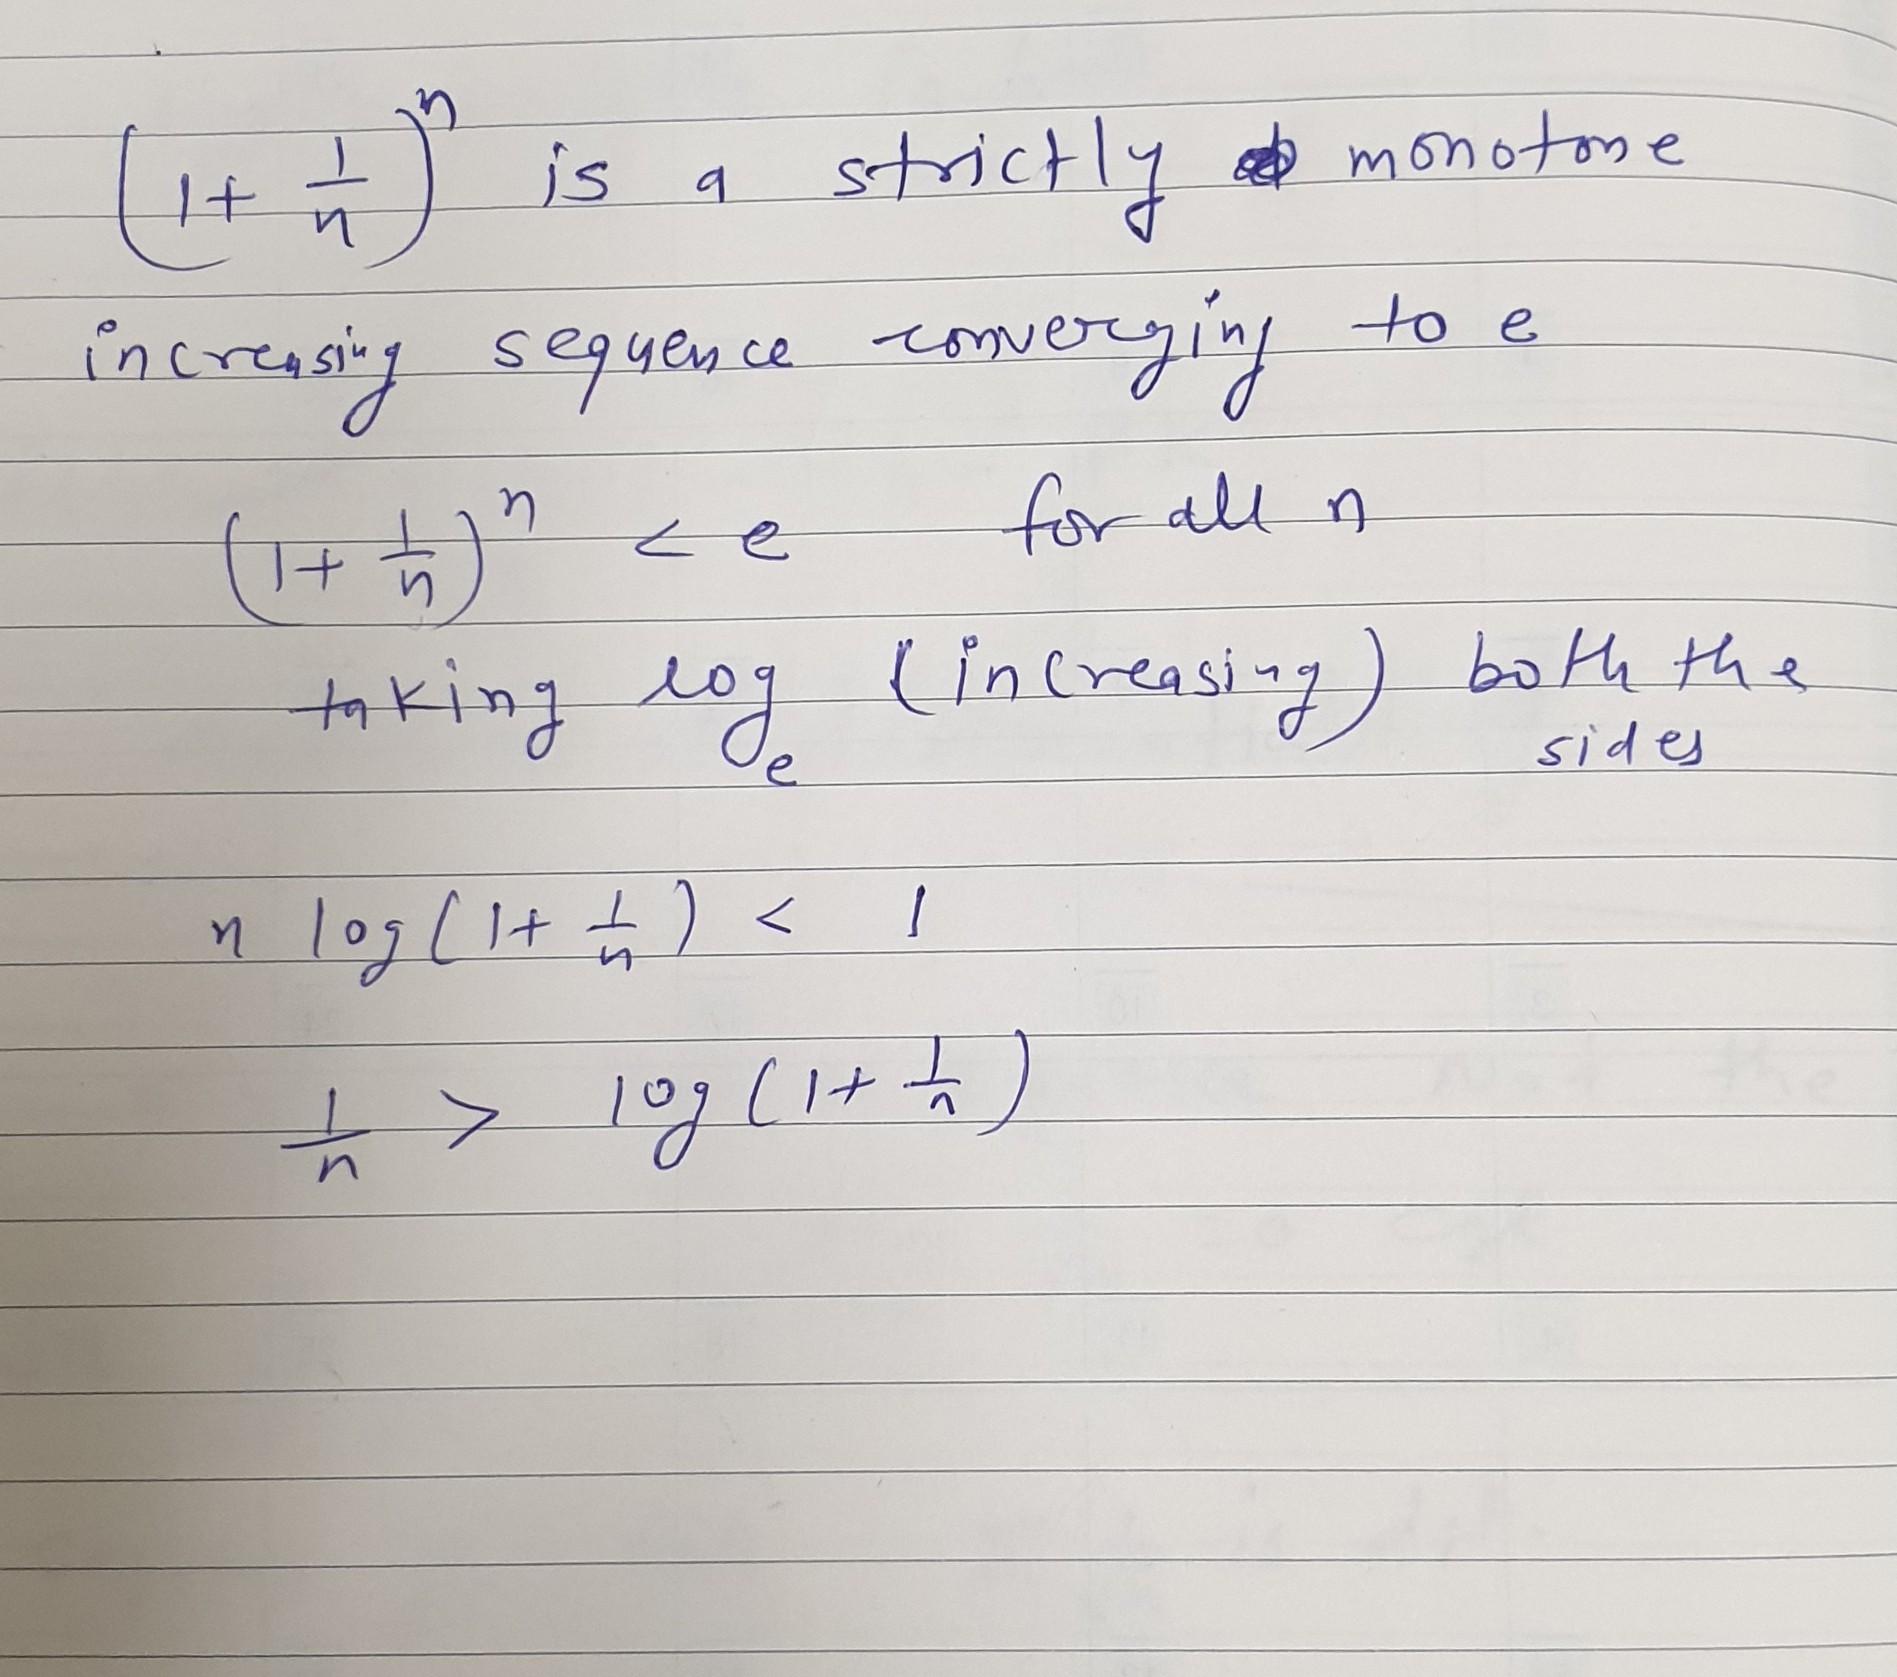 (1 + 1/n)^n is a strictly monotone
increasing sequence converging to e
(1 + 1/n)^n < e for all n
taking log_e (increasing) both the
sides
n log(1 + 1/n) < 1
1/n > log(1 + 1/n)